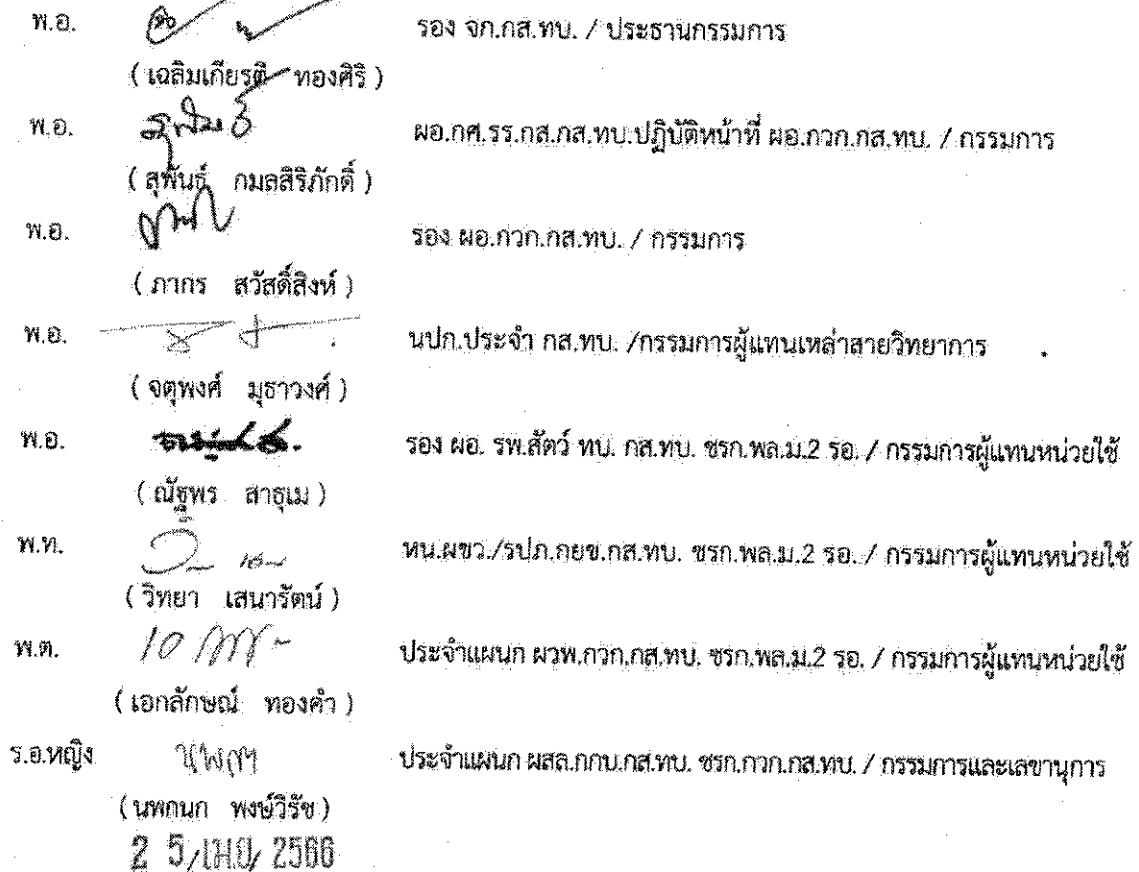 พ.อ. รอง จก.กส.ทบ. / ประธานกรรมการ
( เฉลิมเกียรติ ทองศิริ )
พ.อ. สุพันธ์ ผอ.กศ.รร.กส.กส.ทบ.ปฏิบัติหน้าที่ ผอ.กวก.กส.ทบ. / กรรมการ
( สุพันธ์ กมลสิริภักดิ์ )
พ.อ. รอง ผอ.กวก.กส.ทบ. / กรรมการ
( ภากร สวัสดิ์สิงห์ )
พ.อ. นปก.ประจำ กส.ทบ. /กรรมการผู้แทนเหล่าสายวิทยาการ
( จตุพงศ์ มุธาวงศ์ )
พ.อ. รอง ผอ. รพ.สัตว์ ทบ. กส.ทบ. ชรก.พล.ม.2 รอ. / กรรมการผู้แทนหน่วยใช้
( ณัฐพร สาธุเม )
พ.ท. หน.ผขว./รปภ.กยข.กส.ทบ. ชรก.พล.ม.2 รอ. / กรรมการผู้แทนหน่วยใช้
( วิทยา เสนารัตน์ )
พ.ต. ประจำแผนก ผวพ.กวก.กส.ทบ. ชรก.พล.ม.2 รอ. / กรรมการผู้แทนหน่วยใช้
( เอกลักษณ์ ทองคำ )
ร.อ.หญิง ประจำแผนก ผสล.กกบ.กส.ทบ. ชรก.กวก.กส.ทบ. / กรรมการและเลขานุการ
(นพกนก พงษ์วิรัช )
2 5 /เม.ย/ 2566